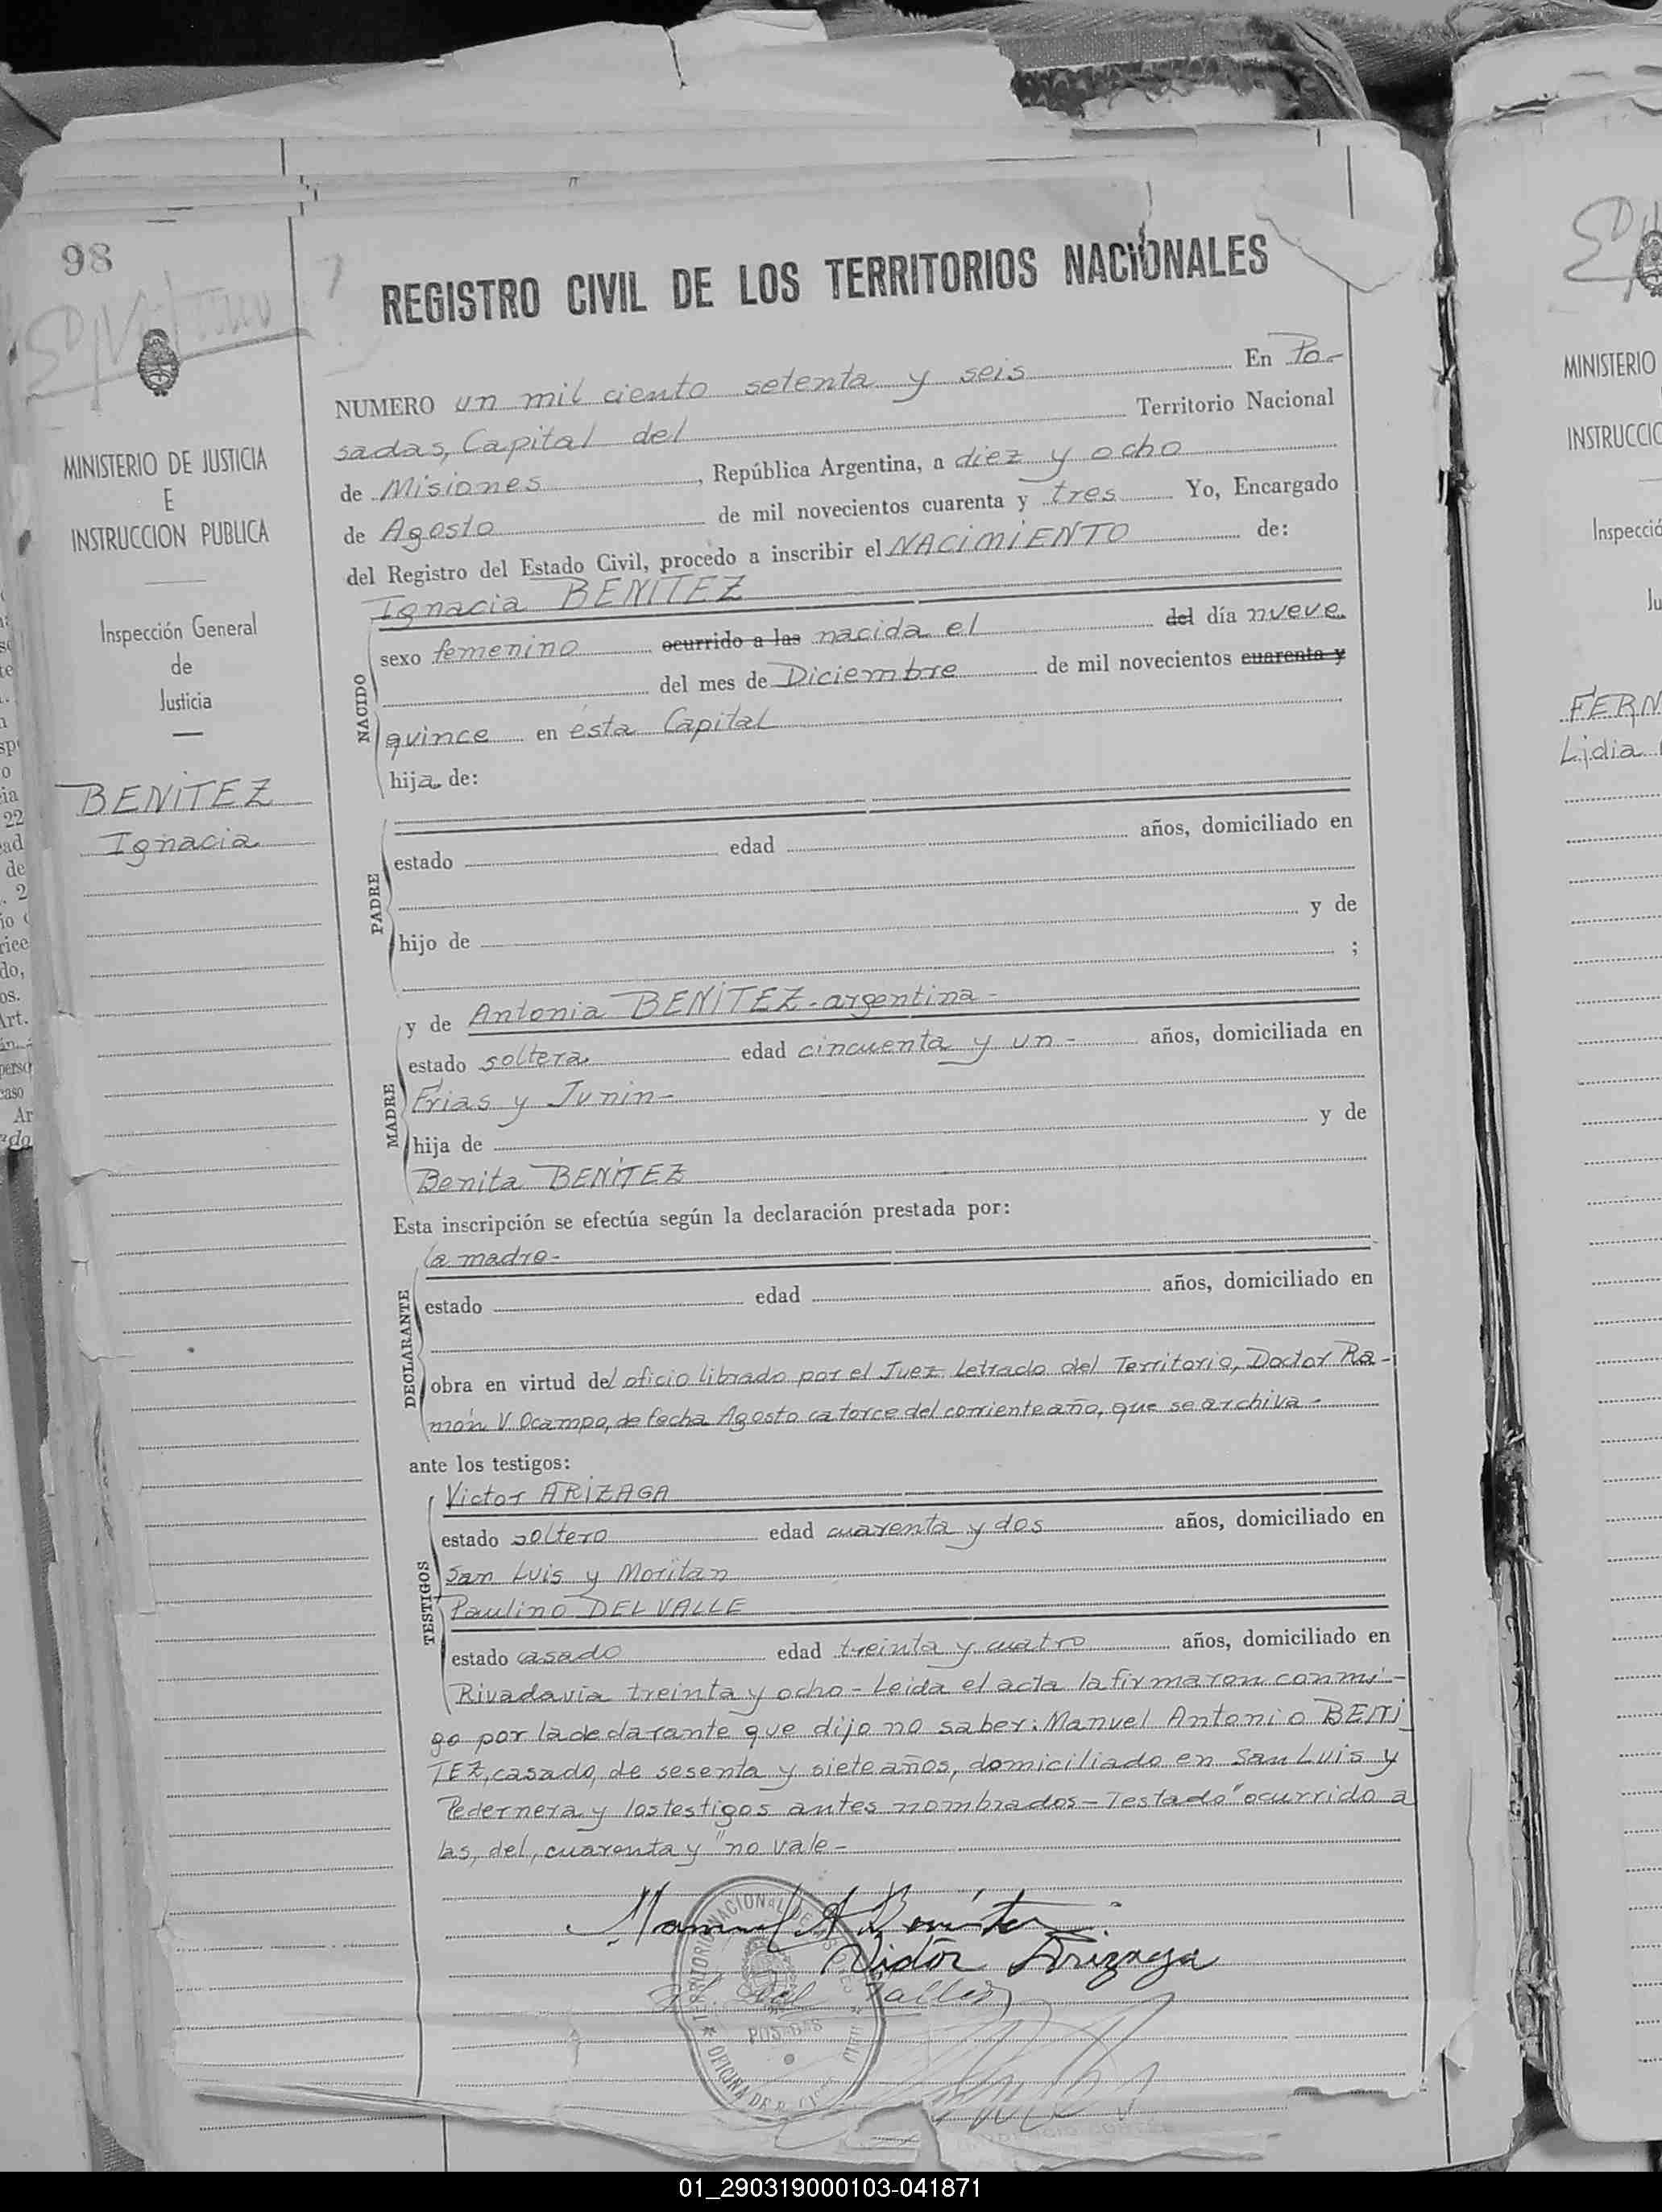 98
MINISTERIO DE JUSTICIA
E
INSTRUCCION PUBLICA
Inspección General
de
Justicia
BENITEZ
Ignacia
REGISTRO CIVIL DE LOS TERRITORIOS NACIONALES
NUMERO un mil ciento setenta y seis En Po-
sadas, Capital del Territorio Nacional
de Misiones, República Argentina, a diez y ocho
de Agosto de mil novecientos cuarenta y tres Yo, Encargado
del Registro del Estado Civil, procedo a inscribir el NACIMIENTO de:
Ignacia BENITEZ
NACIDO
sexo femenino ocurrido a las nacida el del día nueve
del mes de Diciembre de mil novecientos cuarenta y
quince en esta Capital
hija de:
PADRE
estado edad años, domiciliado en
hijo de y de
;
MADRE
y de Antonia BENITEZ - argentina -
estado soltera edad cincuenta y un - años, domiciliada en
Frias y Junin -
hija de y de
Benita BENITEZ
Esta inscripción se efectúa según la declaración prestada por:
la madre -
DECLARANTE
estado edad años, domiciliado en
obra en virtud del oficio librado por el Juez Letrado del Territorio, Doctor Ra-
món V. Ocampo, de fecha Agosto catorce del corriente año, que se archiva -
ante los testigos:
TESTIGOS
Victor ARIZAGA
estado soltero edad cuarenta y dos años, domiciliado en
San Luis y Moritan
Paulino DEL VALLE
estado casado edad treinta y cuatro años, domiciliado en
Rivadavia treinta y ocho - Leida el acta la firmaron conmi-
go por la declarante que dijo no saber: Manuel Antonio BENI
TEZ, casado, de sesenta y siete años, domiciliado en San Luis y
Pedernera y los testigos antes nombrados - Testado "ocurrido a
las, del, cuarenta y" no vale -
Manuel A Benitez
Victor Arizaga
del Valle
POSADAS
MINISTERIO
INSTRUCCIO
Inspecció
Ju
FERN
Lidia
01_290319000103-041871